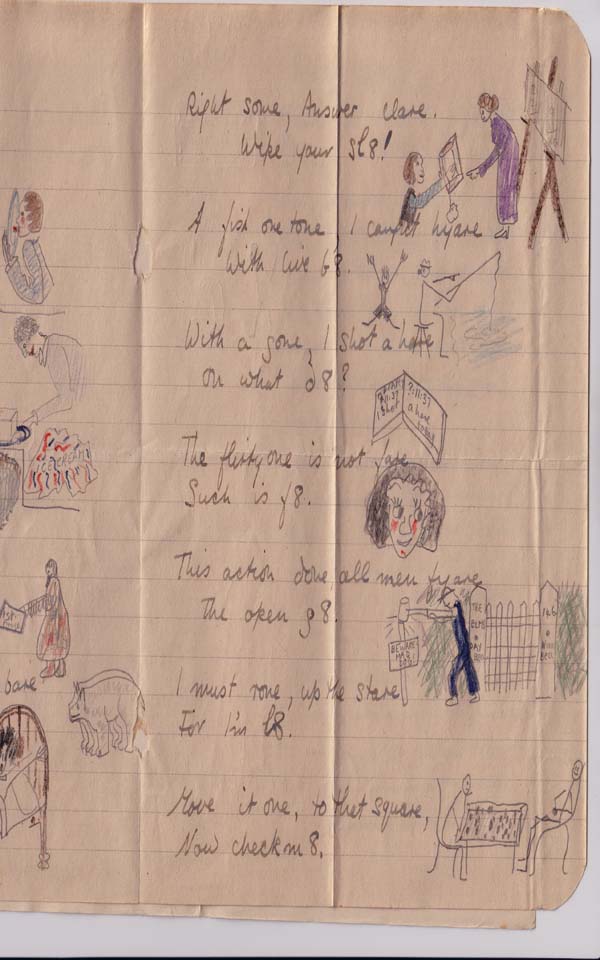 Right some, Answer Clare.
Wipe your sl8!
A fish one tone, I cannot hyare
With live b8.
With a gone, I shot a hare
On what d8?
The flirty one is not fare
Such is f8.
This action done, all men fyare
The open g8.
BEWARE
THE ELMS
146
bare
I must rone, up the stare
For I'm l8.
Move it one, to that square,
Now checkm8.